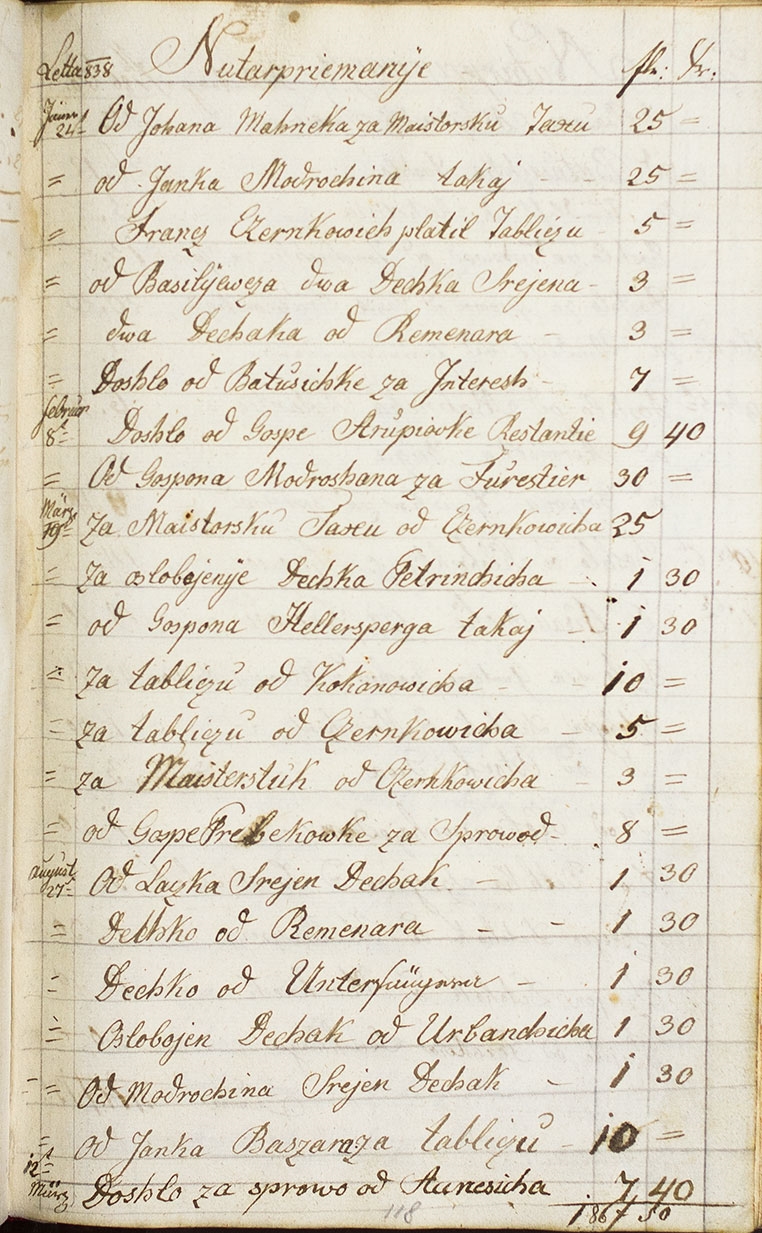 Letta 838 Nutarpriemanÿe flr: xr:
Januar 24t Od Johana Mahneka za Maistorsku Taxu 25 =
= od Janka Modrochina takaj - - 25 =
= Francz Czernkowich platil Tabliczu - 5 =
= od Basilÿewcza dwa Dechka Srejena - 3 =
= dwa Dechaka od Remenara - 3 =
= Doshlo od Batusichke za Interesh - 7 =
februar 8t= Doshlo od Gospe Strupiovke Restantie 9 40
= Od Gospona Modroshana za Furestier 30 =
März 19t Za Maistorsku Taxu od Czernkowicha 25
= Za oslobojenÿe Dechka Petrinchicha - 1 30
= od Gospona Hellersperga takaj - 1 30
= Za tabliczu od Kokanowicha - - 10 =
= za tabliczu od Czernkowicha - 5 =
= za Maisterstuk od Czernkowicha - 3 =
= od Gospe Frebekowke za Sprowod - 8 =
august 27t Od Laczka Srejen Dechak - 1 30
= Dechko od Remenara - - 1 30
= Dechko od - 1 30
= Oslobojen Dechak od Urbanchicha 1 30
- = Od Modrochina Srejen Dechak - 1 30
= od Janka Baszaraza tabliczu - 10 =
12t= März Doshlo za sprowo od Aunesicha 7 40
118 186 50